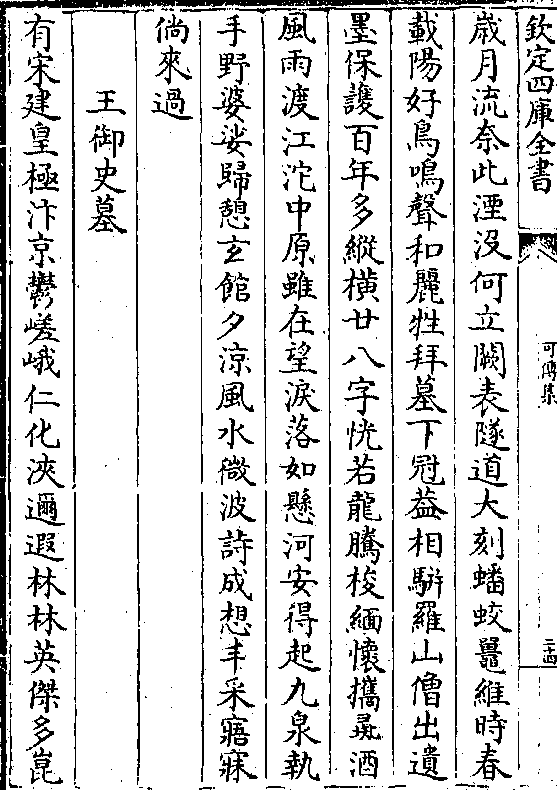 欽定四庫全書
可傳集
二十四
歲月流奈此湮沒何立闕表隧道大刻蟠蛟鼉維時春
載陽好鳥鳴聲和麗牲拜墓下冠葢相騈羅山僧出遺
墨保護百年多縱橫廿八字恍若龍騰梭緬懷攜斝酒
風雨渡江沱中原雖在望淚落如懸河安得起九泉執
手野婆娑歸憩玄館夕涼風水微波詩成想丰采寤寐
倘來過
王御史墓
有宋建皇極汴京鬱嵯峨仁化浹邇遐林林英傑多崑